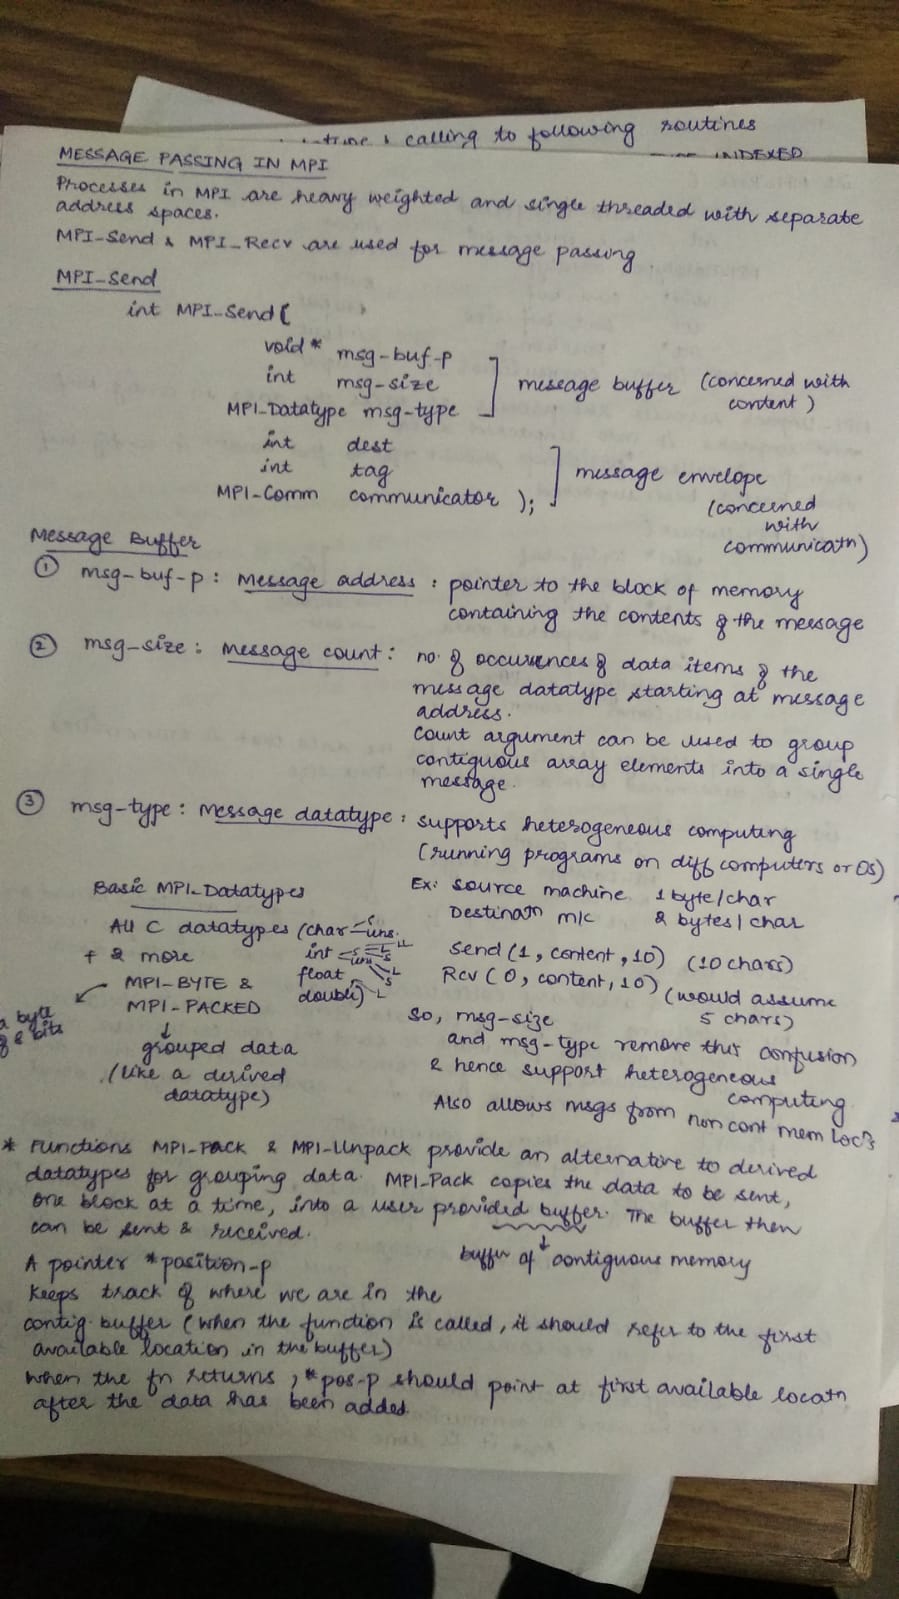 calling to following routines
INDEXED
MESSAGE PASSING IN MPI
Processes in MPI are heavy weighted and single threaded with separate
address spaces.
MPI-Send & MPI-Recv are used for message passing
MPI-Send
int MPI-Send (
void* msg-buf-p
int msg-size
message buffer (concerned with
content)
MPI-Datatype msg-type
int dest
int tag
message envelope
MPI-Comm communicator );
(concerned
with
communicatn)
Message Buffer
① msg-buf-p : Message address : pointer to the block of memory
containing the contents of the message
② msg-size : Message count : no. of occurences of data items of the
message datatype starting at message
address.
Count argument can be used to group
contiguous array elements into a single
message.
③ msg-type : Message datatype : supports heterogeneous computing
(running programs on diff computers or OS)
Basic MPI-Datatypes
Ex: source machine 1 byte/char
Destinatn m/c 2 bytes/char
All C datatypes (char uns.
int
float
double)
+ 2 more
MPI-BYTE &
MPI-PACKED
a byte
of 8 bits
grouped data
(like a derived
datatype)
Send (1, content, 10) (10 chars)
Rcv (0, content, 10) (would assume
5 chars)
So, msg-size
and msg-type remove this confusion
& hence support heterogeneous
computing.
Also allows msgs from non cont mem loc's
* Functions MPI-Pack & MPI-Unpack provide an alternative to derived
datatypes for grouping data. MPI-Pack copies the data to be sent,
one block at a time, into a user provided buffer. The buffer then
can be sent & received.
buffer of contiguous memory
A pointer *position-p
keeps track of where we are in the
contig. buffer (when the function is called, it should refer to the first
available location in the buffer)
when the fn returns, *pos-p should point at first available locatn
after the data has been added.